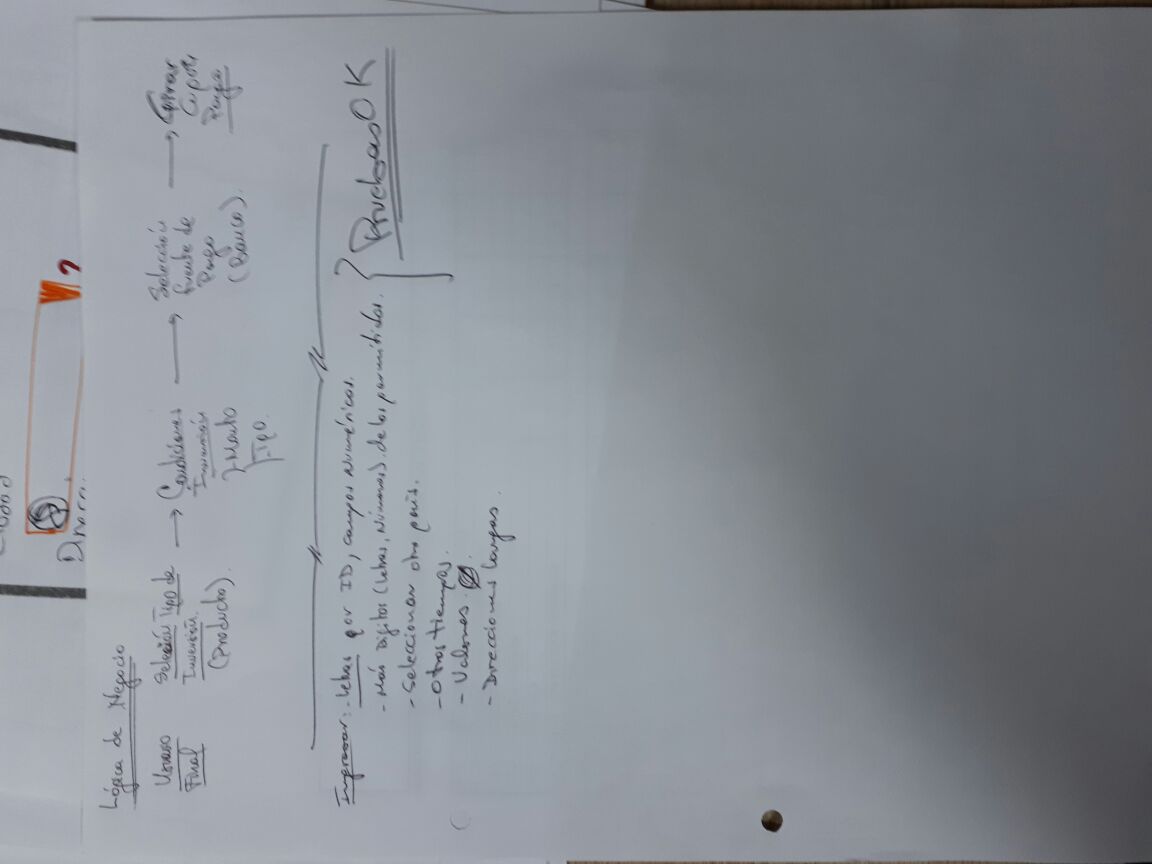 Lógica de Negocio
Usuario
Final
Selección Tipo de
Inversión.
(Producto).
Condiciones
Inversión
Monto
Tipo.
Selección
fuente de
Pago
(Banco).
Pago
Ingresar: - Letras por ID, campos Numéricos.
- Más Digitos (Letras, Números) de los permitidos.
- Seleccionar otro país.
- Otros tiempos.
- Valores.
- Direcciones largas.
Pruebas OK